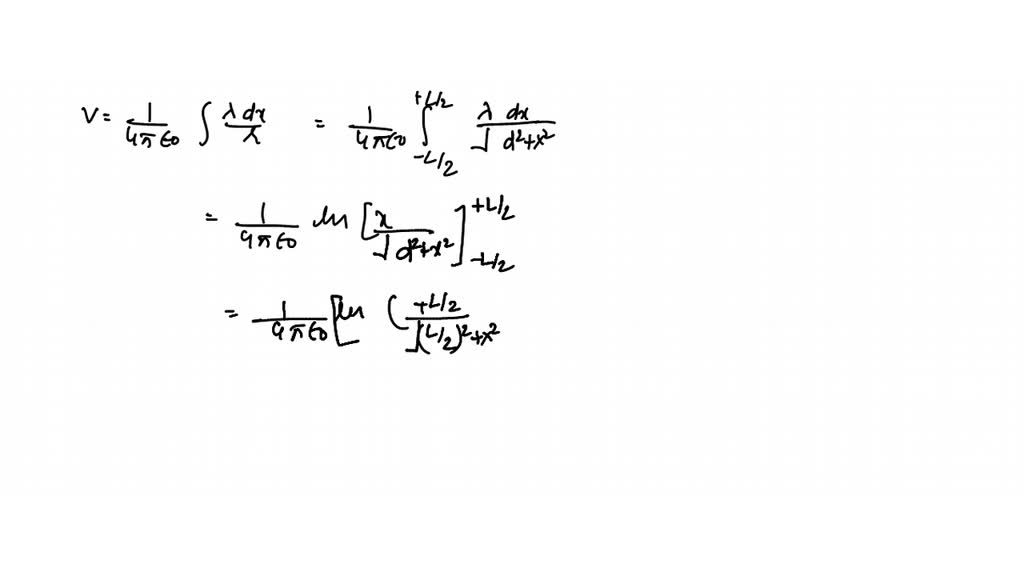 V = 1/4πε0 ∫ λdx/r = 1/4πε0 ∫_{-L/2}^{+L/2} λ dx/√d²+x²
= 1/4πε0 ln [x/√d²+x²]_{-L/2}^{+L/2}
= 1/4πε0 [ln (+L/2/√(L/2)²+x²